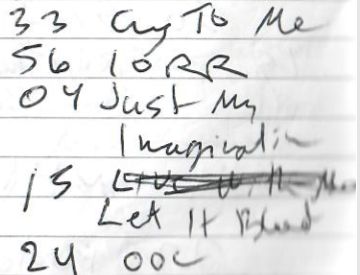 33 Cry To Me
56 IORR
04 Just My
Imagination
15 Live With Me
Let It Bleed
24 OOC